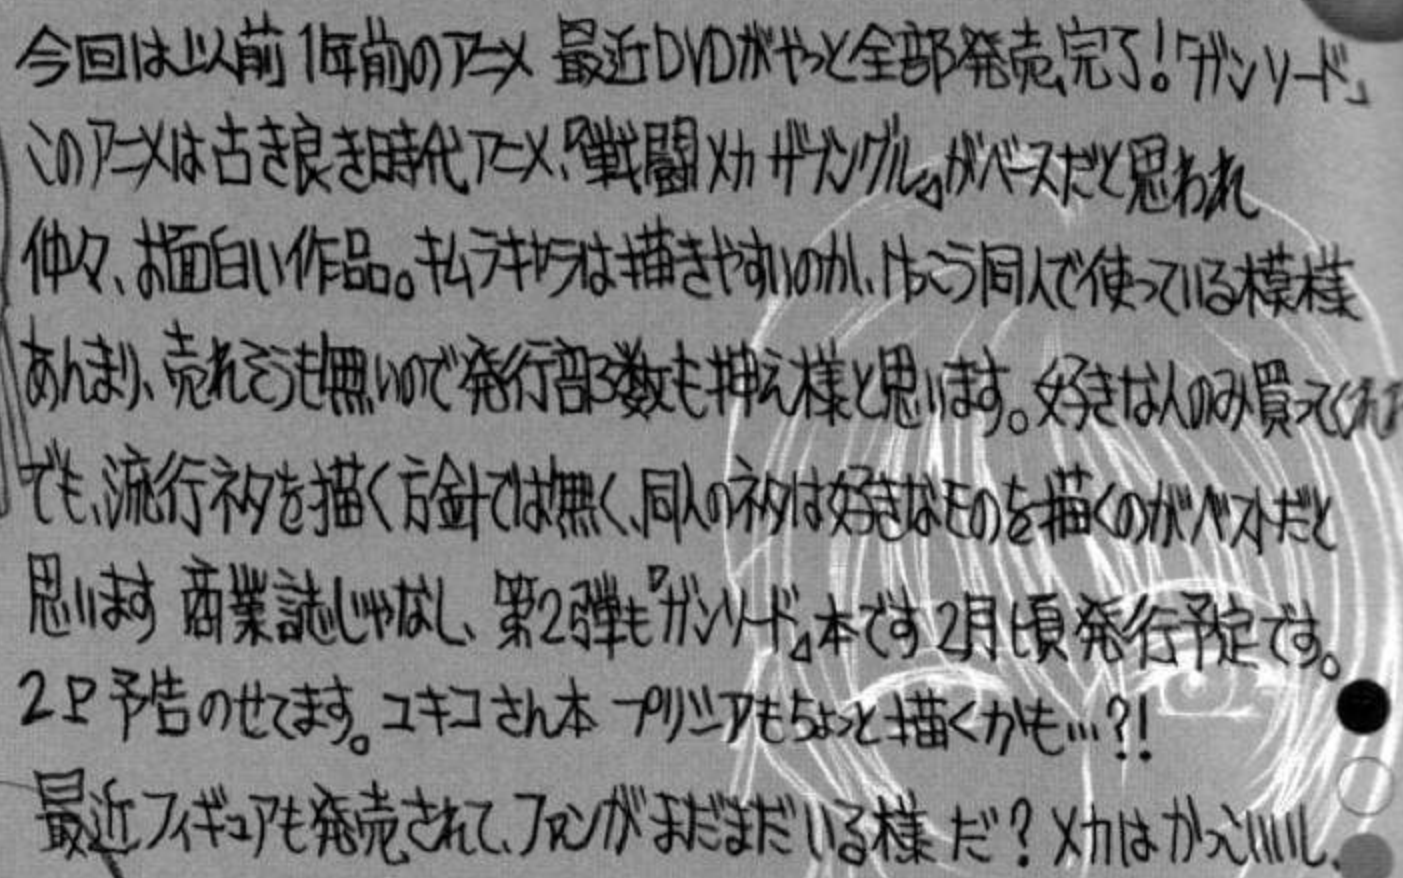 今回は以前1年前のアニメ 最近DVDがやっと全部発売、完了!「ガンソード」
このアニメは古き良き時代アニメ、『戦闘メカ ザブングル』がベースだと思われ
仲々、お面白い作品。キムラキャラは描きやすいのか、けっこう同人で使っている模様
あんまり、売れそうも無いので発行部数も押え様と思います。好きな人のみ買ってくれれば
でも、流行ネタを描く方針では無く、同人のネタは好きなものを描くのがベストだと
思います 商業誌じゃなし、第2弾も『ガンソード』本です2月頃発行予定です。
2P予告のせてます。ユキコさん本 プリシアもちょっと描くかも…?!
最近フィギュアも発売されて、ファンがまだまだいる様だ?メカはかっこいいし、